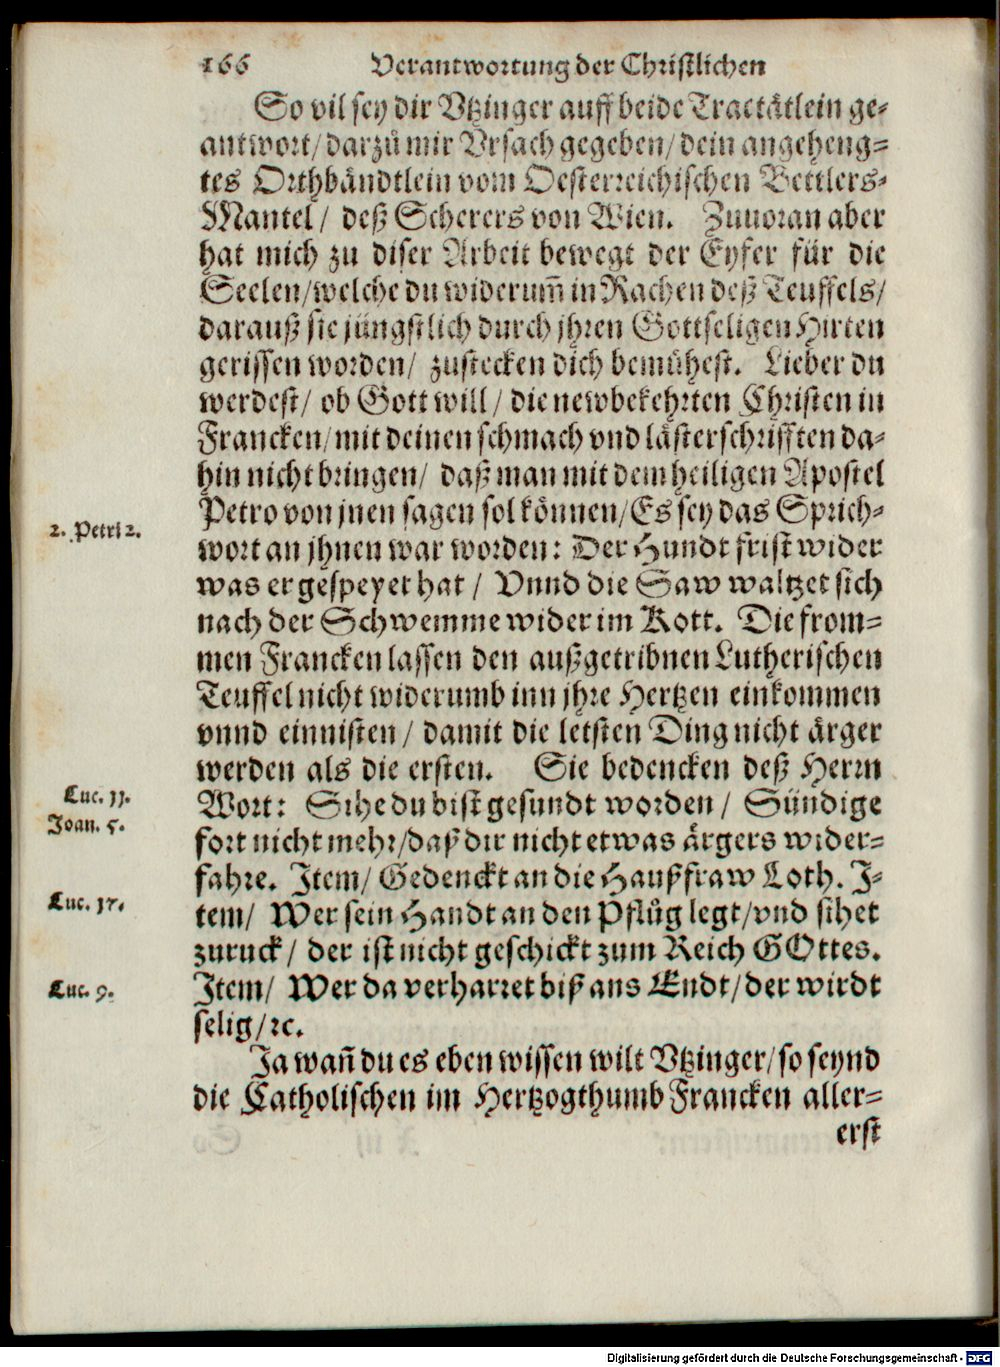 166 Verantwortung der Christlichen
So vil sey dir Vtzinger auff beide Tractåtlein ge-
antwort/ darzů mir Vrsach gegeben/ dein angeheng-
tes Orthbåndtlein vom Oesterreichischen Bettlers-
Mantel/ deß Scherers von Wien. Zuuoran aber
hat mich zu diser Arbeit bewegt der Eyfer für die
Seelen/ welche du widerum̃ in Rachen deß Teuffels/
darauß sie jüngstlich durch jhren Gottseligen Hirten
gerissen worden/ zustecken dich bemühest. Lieber du
werdest/ ob Gott will/ die newbekehrten Christen in
Francken/ mit deinen schmach vnd låsterschrifften da-
hin nicht bringen/ daß man mit dem heiligen Apostel
Petro von jnen sagen sol können/ Es sey das Sprich-
2. Petri 2.
wort an jhnen war worden: Der Hundt frist wider
was er gespeyet hat/ Vnnd die Saw waltzet sich
nach der Schwemme wider im Kott. Die from-
men Francken lassen den außgetribnen Lutherischen
Teuffel nicht widerumb inn jhre Hertzen einkommen
vnnd einnisten/ damit die letsten Ding nicht årger
werden als die ersten. Sie bedencken deß Herrn
Luc. 11.
Wort: Sihe du bist gesundt worden/ Sündige
Joan. 5.
fort nicht mehr/ daß dir nicht etwas årgers wider-
fahre. Item/ Gedenckt an die Haußfraw Loth. I-
Luc. 17.
tem/ Wer sein Handt an den Pflůg legt/ vnd sihet
zuruck/ der ist nicht geschickt zum Reich GOttes.
Luc. 9.
Item/ Wer da verharret biß ans Endt/ der wirdt
selig/ ꝛc.
Ja wañ du es eben wissen wilt Vtzinger/ so seynd
die Catholischen im Hertzogthumb Francken aller-
erst
Digitalisierung gefördert durch die Deutsche Forschungsgemeinschaft - DFG